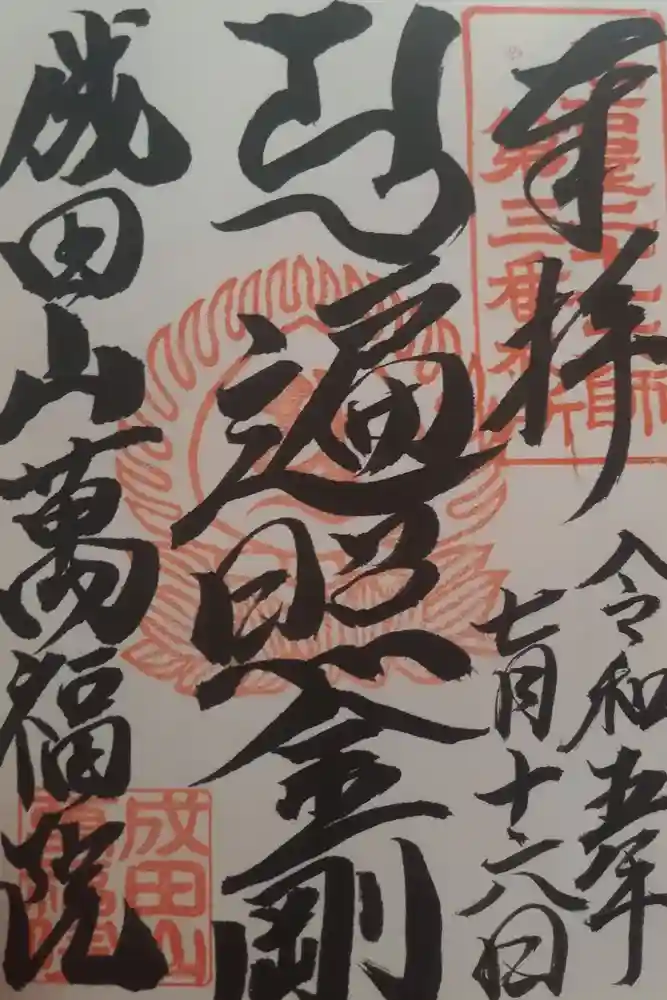 奉拝
令和五年
七月十六日
第三番札所
遍照金剛
成田山萬福院
成田山
萬福院